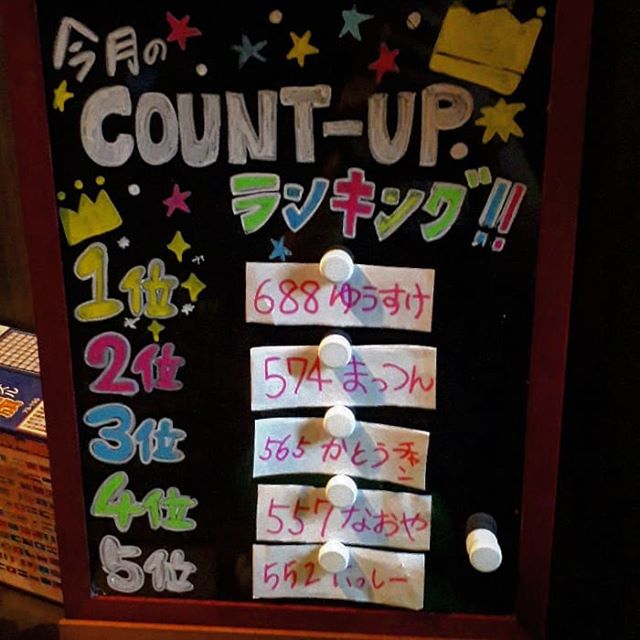 今月の
COUNT-UP
ランキング!!
1位
688 ゆうすけ
2位
574 まっつん
3位
565 かとう
4位
557 なおや
5位
552